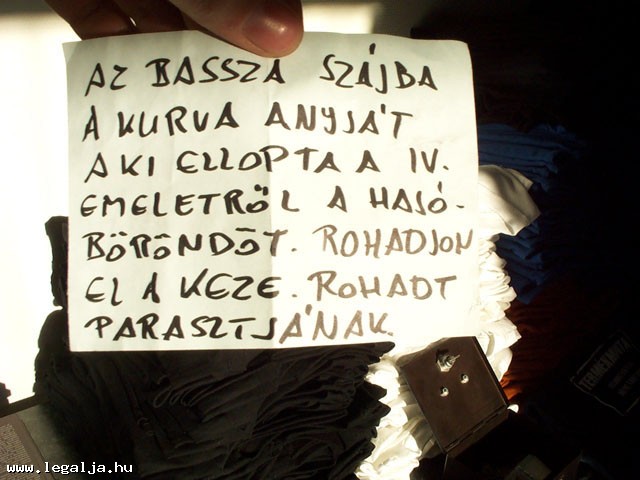 AZ BASSZA SZÁJBA
A KURVA ANYJÁT
AKI ELLOPTA A IV.
EMELETRŐL A HAJÓ-
BÖRÖNDÖT. ROHADJON
EL A KEZE. ROHADT
PARASZTJÁNAK.
www.legalja.hu